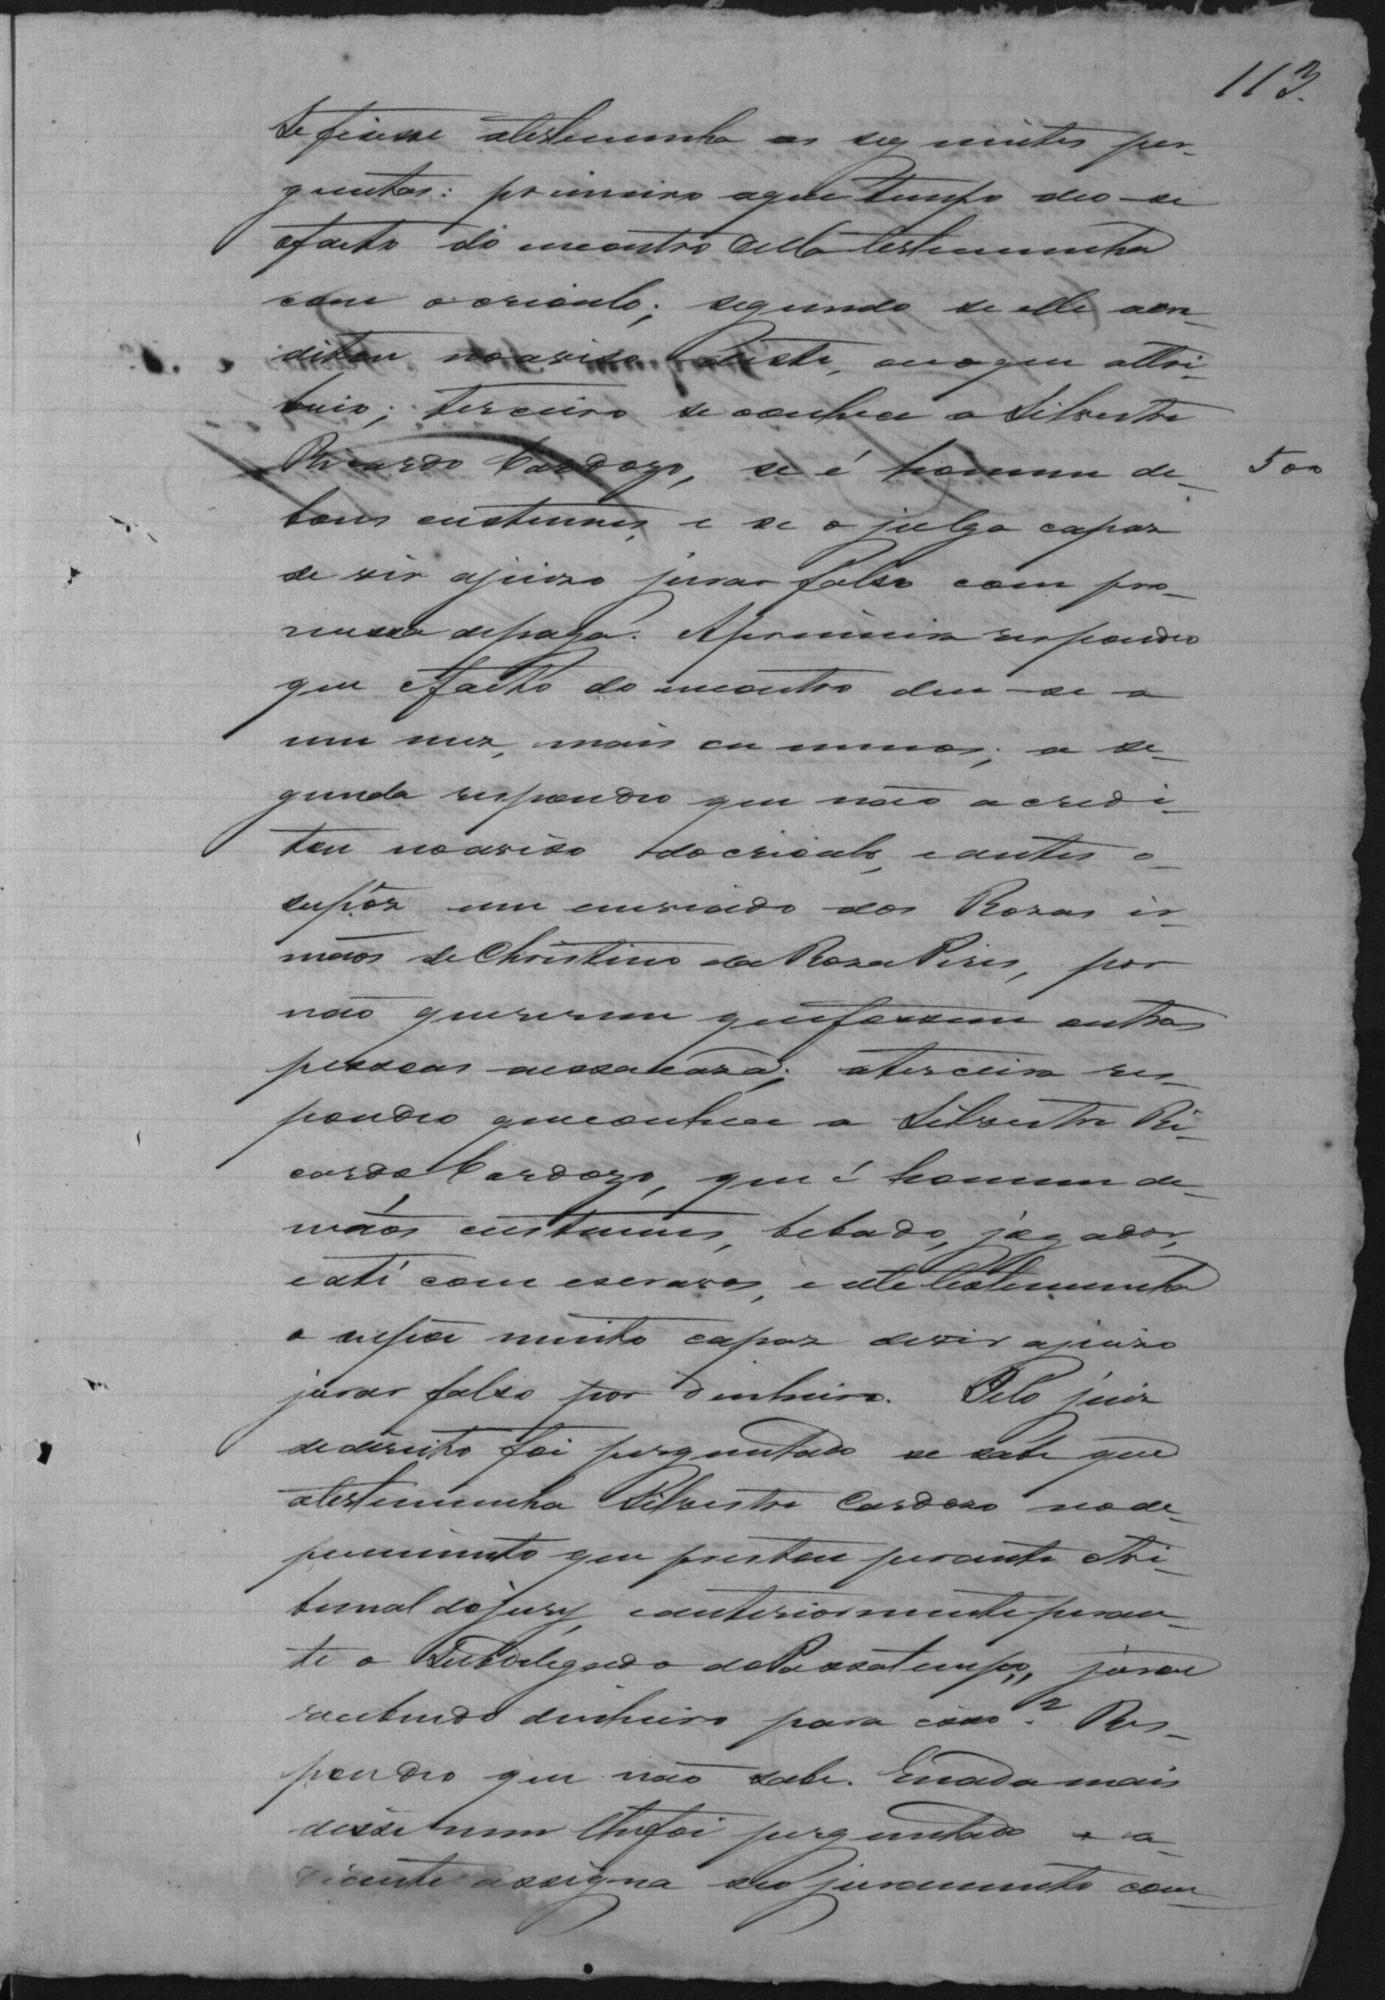 113.
se fizesse atestemunha as seguintes per-
guntas: primeiro aque tempo deo-se
ofacto do encontro della testemunha
com o crioulo; segundo se elle acre-
ditou noaviso deste, ouaque attri-
buio; terceiro se conhece a Silvestre
Ricardo Cardozo, se é homem de
500
bons custumes, e se o julga capaz
de vir ajuizo jurar falso com pro-
messa depaga. Aprimeira respondeo
que ofacto do encontro deu-se a
um mez, mais ou menos; a se-
gunda respondeo que não acredi-
tou noaviso docrioulo, eantes o
supôz um enviado dos Rozas ir-
mãos de Christino da Roza Pires, por
não quererem quefossem outras
pessoas aessacaza; aterceira res-
pondeo queconhece a Silvestre Ri-
cardo Cardozo, que é homem de
máos custumes, bebado, jogador,
eaté com escravos, e elle testemunha
o supõe muito capaz devir ajuizo
jurar falso por dinheiro. Pelo juiz
dedireito foi perguntado se sabe que
atestemunha Silvestre Cardozo node-
puimento que prestou perante oTri-
bunal dojury, eanteriormente peran-
te o Subdelegado doPassatempo, jurou
recebendo dinheiro para isso? Res-
pondeo que não sabe. Enada mais
disse nem lhefoi perguntado e a-
assigna seo juramento com